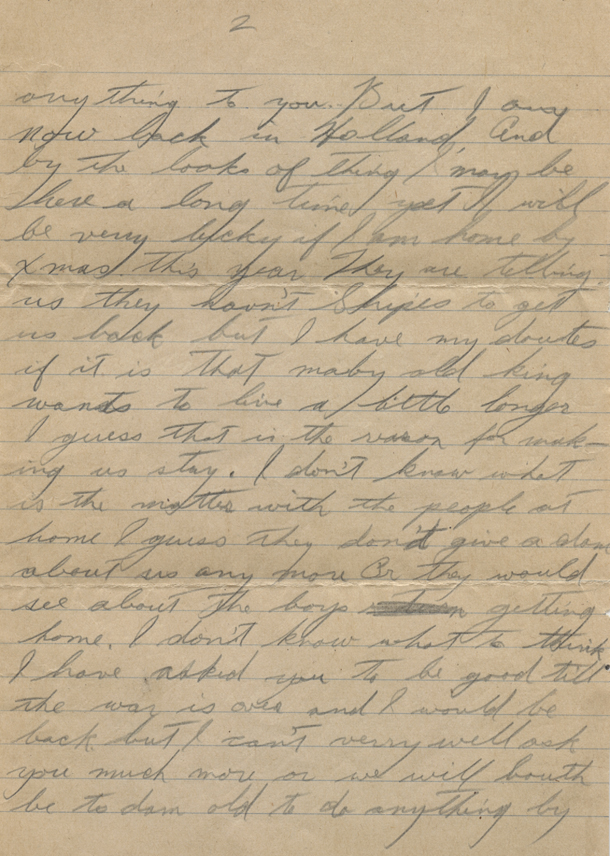 2
any thing to you. But I am
now back in Holland, And
by the looks of thing I may be
here a long time yet I will
be verry lucky if I am home by
Xmas this year They are telling
us they havn't Shipes to get
us back but I have my doutes
if it is that maby old king
wants to live a little longer
I guess that is the reason for mak-
ing us stay. I don't know what
is the matter with the people at
home I guess they don't give a dam
about us any more Or they would
see about the boys getting
home. I don't know what to think
I have asked you to be good till
the war is over and I would be
back but I can't verry well ask
you much more or we will bouth
be to dam old to do anything by